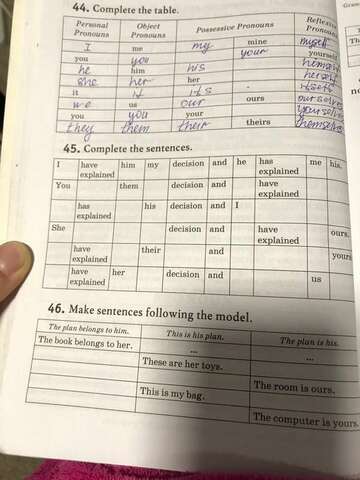 44. Complete the table.
Personal Pronouns Object Pronouns Possessive Pronouns Reflexive Pronouns
I me my mine myself
you you your yourself
he him his himself
she her her herself
it it its - itself
we us our ours ourselves
you you your yourselves
they them their theirs themselves
45. Complete the sentences.
I have explained him my decision and he has explained me his.
You them decision and have explained
has explained his decision and I
She decision and have explained ours.
have explained their and yours
have explained her decision and us
46. Make sentences following the model.
The plan belongs to him. This is his plan. The plan is his.
The book belongs to her. ... ...
These are her toys.
The room is ours.
This is my bag.
The computer is yours.